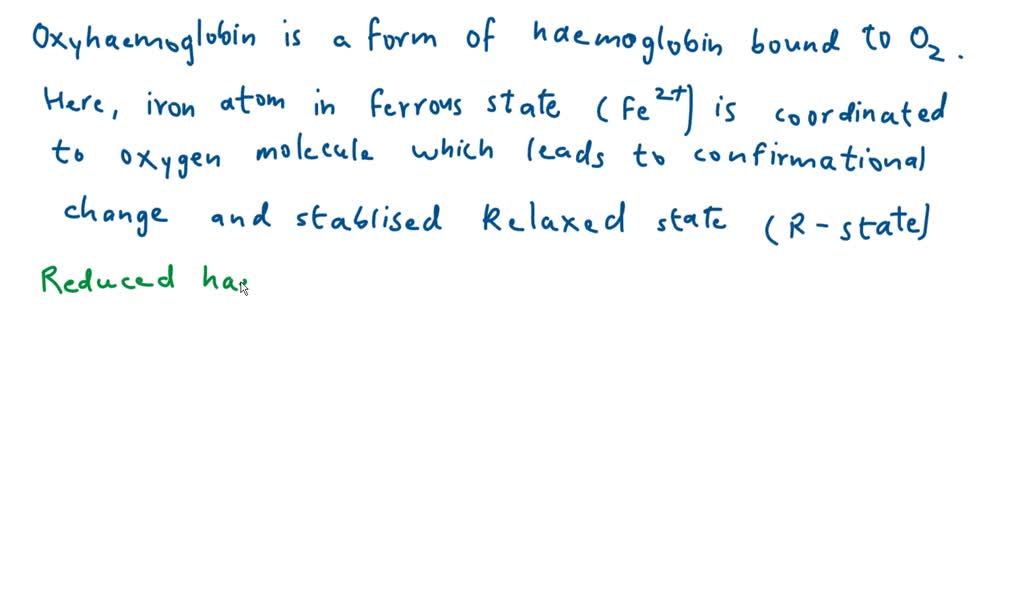 Oxyhaemoglobin is a form of haemoglobin bound to O₂.
Here, iron atom in ferrous state (Fe²⁺) is coordinated
to oxygen molecule which leads to confirmational
change and stablised Relaxed state (R-state)
Reduced hae